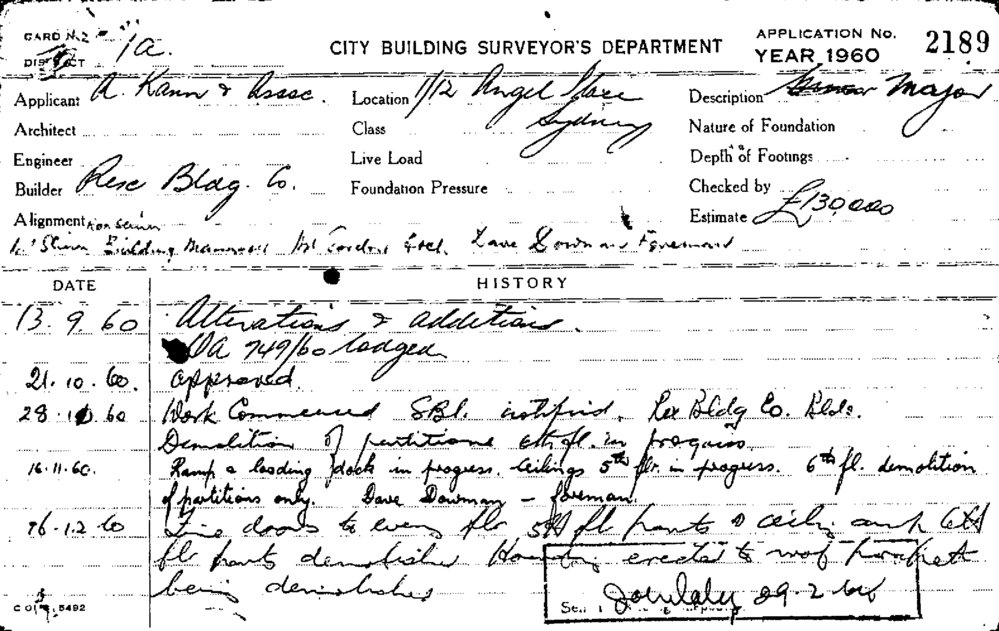 CARD No. 2 1a.
DISTRICT
CITY BUILDING SURVEYOR'S DEPARTMENT
APPLICATION No. 2189
YEAR 1960
Applicant A. Kann & Assoc. Location 1/12 Angel Place Description Major
Architect Class Sydney Nature of Foundation
Engineer Live Load Depth of Footings
Builder Rex Bldg. Co. Foundation Pressure Checked by
Alignment Estimate £130,000
Building Dave Dowman Foreman
DATE HISTORY
13.9.60 Alterations & additions.
DA 749/60 lodged
21.10.60. approved.
28.10.60 Work Commenced SBI. notified. Rex Bldg Co. Bldr.
Demolition of partitions 6th fl. in progress
16.11.60. Ramp & loading dock in progress. Ceilings 5th flr. in progress. 6th fl. demolition
of partitions only. Dave Dowman - foreman.
16.12.60 Fire doors to every flr 5th fl parts & ceiling and 6th
fl parts demolished erected to roof parapet
being demolished
29.2
5492